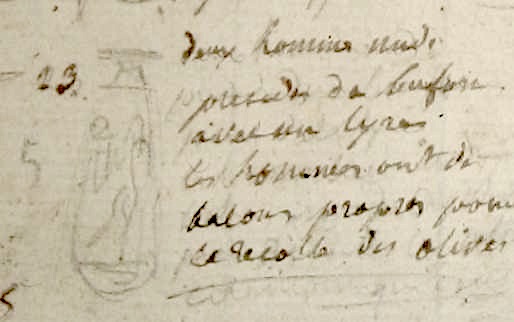 deux homines nuds
23.
precedes de bufon
avec un lyre
les hommes ont de
batons propres pour
la recolte des olives